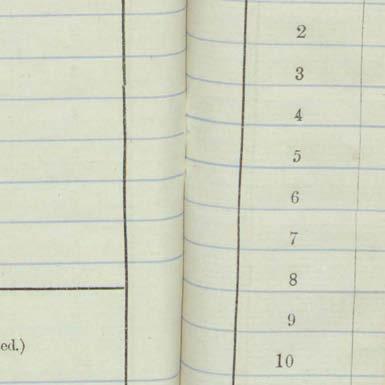 ed.)
2
3
4
5
6
7
8
9
10